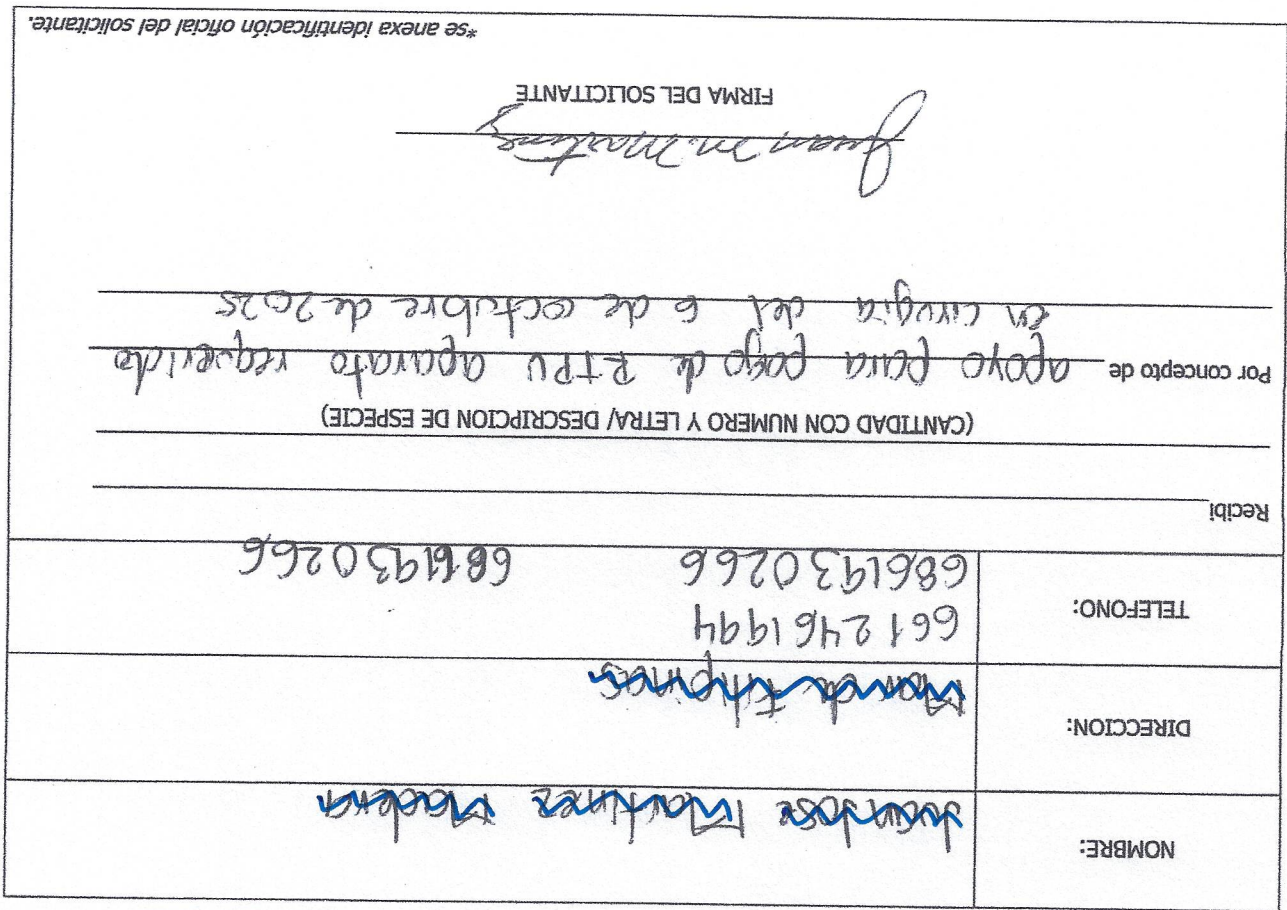 NOMBRE: Juan Jose Martinez Madera
DIRECCION: Filipinas
TELEFONO: 661 2461994
6861930266 6861930266
Recibi
(CANTIDAD CON NUMERO Y LETRA/ DESCRIPCION DE ESPECIE)
Por concepto de apoyo para pago de RTPU aparato requerido
en cirugia del 6 de octubre de 2025
Juan M. Martinez
FIRMA DEL SOLICITANTE
*se anexa identificación oficial del solicitante.